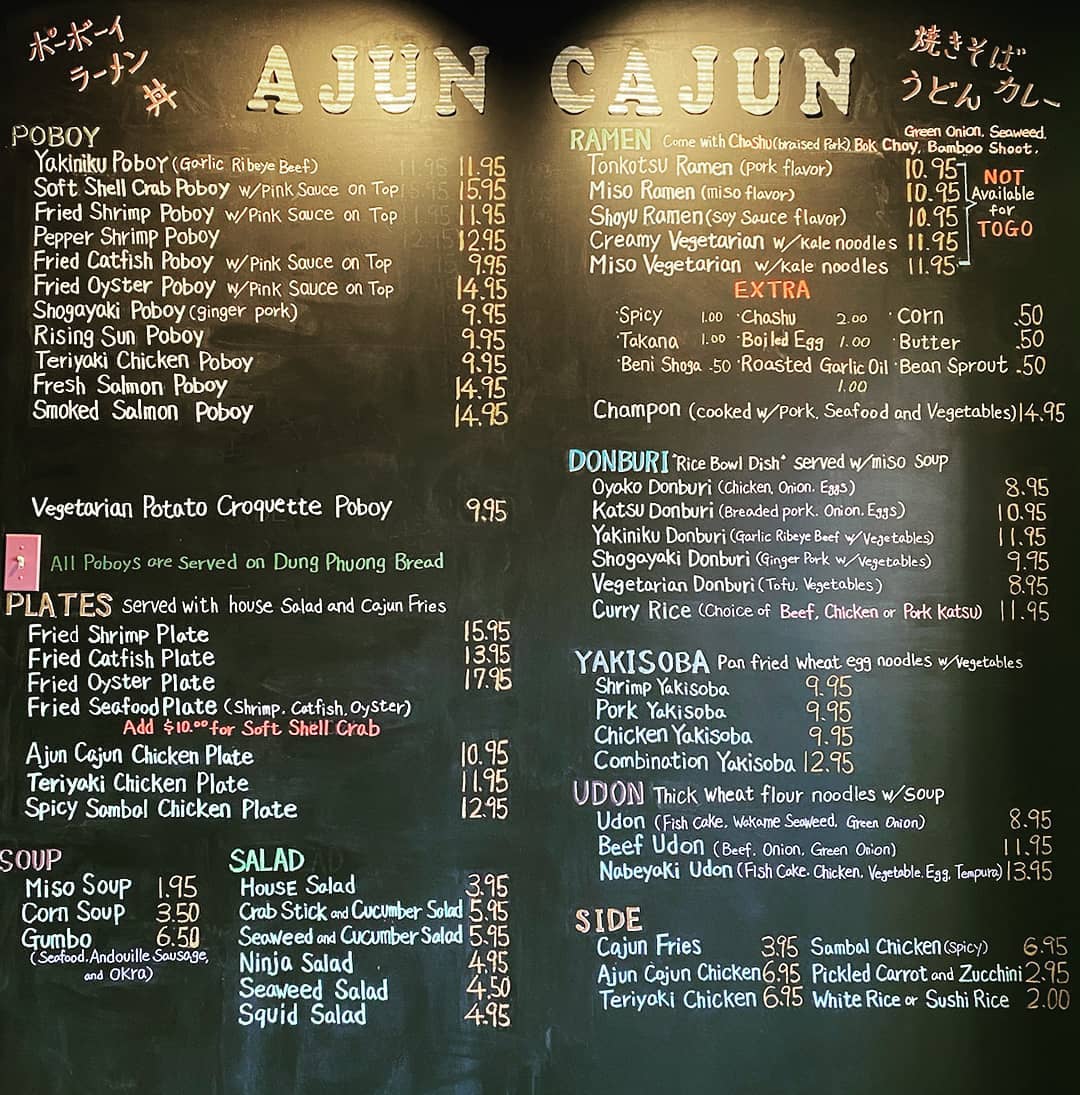 ポーボーイ
ラーメン
丼
AJUN CAJUN
焼きそば
うどん カレー
POBOY
Yakiniku Poboy (Garlic Ribeye Beef) 11.95
Soft Shell Crab Poboy w/Pink Sauce on Top 15.95
Fried Shrimp Poboy w/Pink Sauce on Top 11.95
Pepper Shrimp Poboy 12.95
Fried Catfish Poboy w/Pink Sauce on Top 9.95
Fried Oyster Poboy w/Pink Sauce on Top 14.95
Shogayaki Poboy (ginger pork) 9.95
Rising Sun Poboy 9.95
Teriyaki Chicken Poboy 9.95
Fresh Salmon Poboy 14.95
Smoked Salmon Poboy 14.95
Vegetarian Potato Croquette Poboy 9.95
All Poboys are Served on Dung Phuong Bread
PLATES served with house Salad and Cajun Fries
Fried Shrimp Plate 15.95
Fried Catfish Plate 13.95
Fried Oyster Plate 17.95
Fried Seafood Plate (Shrimp, Catfish, Oyster)
Add $10.00 for Soft Shell Crab
Ajun Cajun Chicken Plate 10.95
Teriyaki Chicken Plate 11.95
Spicy Sambal Chicken Plate 12.95
SOUP
Miso Soup 1.95
Corn Soup 3.50
Gumbo 6.50
(Seafood, Andouille Sausage,
and Okra)
SALAD
House Salad 3.95
Crab Stick and Cucumber Salad 5.95
Seaweed and Cucumber Salad 5.95
Ninja Salad 4.95
Seaweed Salad 4.50
Squid Salad 4.95
Green Onion, Seaweed,
RAMEN Come with Chashu (braised Pork), Bok Choy, Bamboo Shoot.
Tonkotsu Ramen (pork flavor) 10.95
Miso Ramen (miso flavor) 10.95
Shoyu Ramen (soy Sauce flavor) 10.95
Creamy Vegetarian w/kale noodles 11.95
Miso Vegetarian w/kale noodles 11.95
NOT
Available
for
TOGO
EXTRA
·Spicy 1.00 ·Chashu 2.00 ·Corn .50
·Takana 1.00 ·Boiled Egg 1.00 ·Butter .50
·Beni Shoga .50 ·Roasted Garlic Oil ·Bean Sprout .50
1.00
Champon (cooked w/Pork, Seafood and Vegetables) 14.95
DONBURI "Rice Bowl Dish" served w/miso soup
Oyoko Donburi (Chicken, Onion, Eggs) 8.95
Katsu Donburi (Breaded pork, Onion, Eggs) 10.95
Yakiniku Donburi (Garlic Ribeye Beef w/Vegetables) 11.95
Shogayaki Donburi (Ginger Pork w/Vegetables) 9.95
Vegetarian Donburi (Tofu, Vegetables) 8.95
Curry Rice (Choice of Beef, Chicken or Pork Katsu) 11.95
YAKISOBA Pan fried wheat egg noodles w/Vegetables
Shrimp Yakisoba 9.95
Pork Yakisoba 9.95
Chicken Yakisoba 9.95
Combination Yakisoba 12.95
UDON Thick wheat flour noodles w/soup
Udon (Fish Cake, Wakame Seaweed, Green Onion) 8.95
Beef Udon (Beef, Onion, Green Onion) 11.95
Nabeyaki Udon (Fish Cake, Chicken, Vegetable, Egg, Tempura) 13.95
SIDE
Cajun Fries 3.95 Sambal Chicken (Spicy) 6.95
Ajun Cajun Chicken 6.95 Pickled Carrot and Zucchini 2.95
Teriyaki Chicken 6.95 White Rice or Sushi Rice 2.00